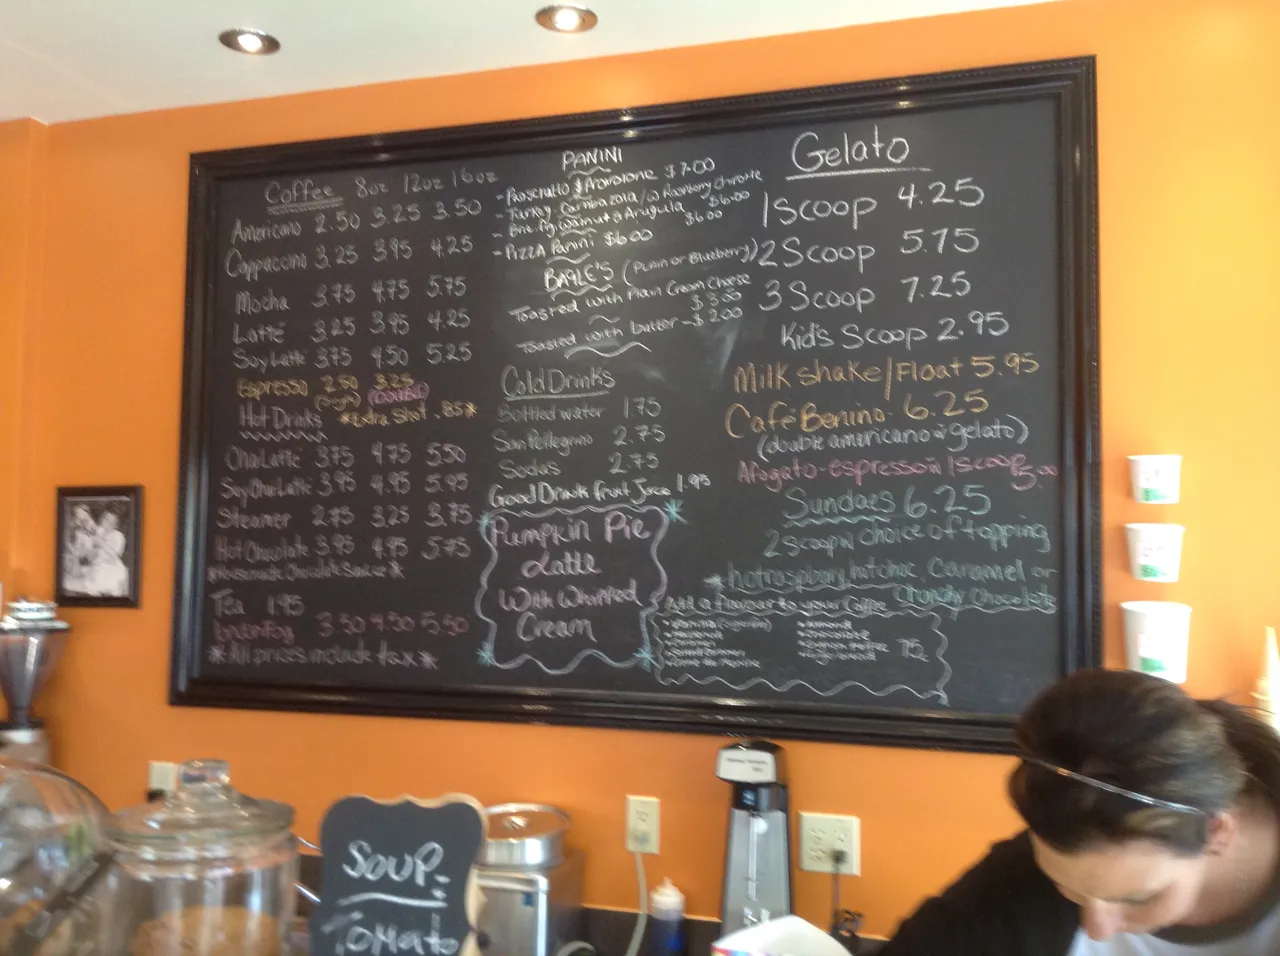 Coffee 8oz 12oz 16oz
Americano 2.50 3.25 3.50
Cappuccino 3.25 3.95 4.25
Mocha 3.75 4.75 5.75
Latté 3.25 3.95 4.25
Soy Latté 3.75 4.50 5.25
Espresso 2.50 3.25
(Single) (Double)
*Extra Shot .85*
Hot Drinks
Chai Latté 3.75 4.75 5.50
Soy Chai Latté 3.95 4.95 5.95
Steamer 2.75 3.25 3.75
Hot Chocolate 3.95 4.95 5.75
*Homemade Chocolate Sauce*
Tea 1.95
London Fog 3.50 4.50 5.50
*All prices include tax*
PANINI
- Prosciutto & Provolone $7.00
- Turkey, /w Raspberry
- Brie, Fig, Walnut & Arugula $6.00
$6.00
- PIZZA Panini $6.00
BAGLE'S (Plain or Blueberry)
Toasted with Plain Cream Cheese
$3.00
Toasted with butter - $2.00
Cold Drinks
Bottled water 1.75
San Pellegrino 2.75
Sodas 2.75
Good Drink fruit Juice 1.95
Pumpkin Pie
Latte
With Whipped
Cream
Gelato
1 Scoop 4.25
2 Scoop 5.75
3 Scoop 7.25
Kid's Scoop 2.95
Milk shake/Float 5.95
Café Benino 6.25
(double americano w gelato)
Afogato-espresso w 1 scoop 5.00
Sundaes 6.25
2 scoop w choice of topping
hot raspberry, hot choc, Caramel or
Crunchy Chocolate
Add a flavour to your Coffee
• Vanilla
• Hazelnut
• Almond
• Chocolate
.75
SOUP-
Tomato